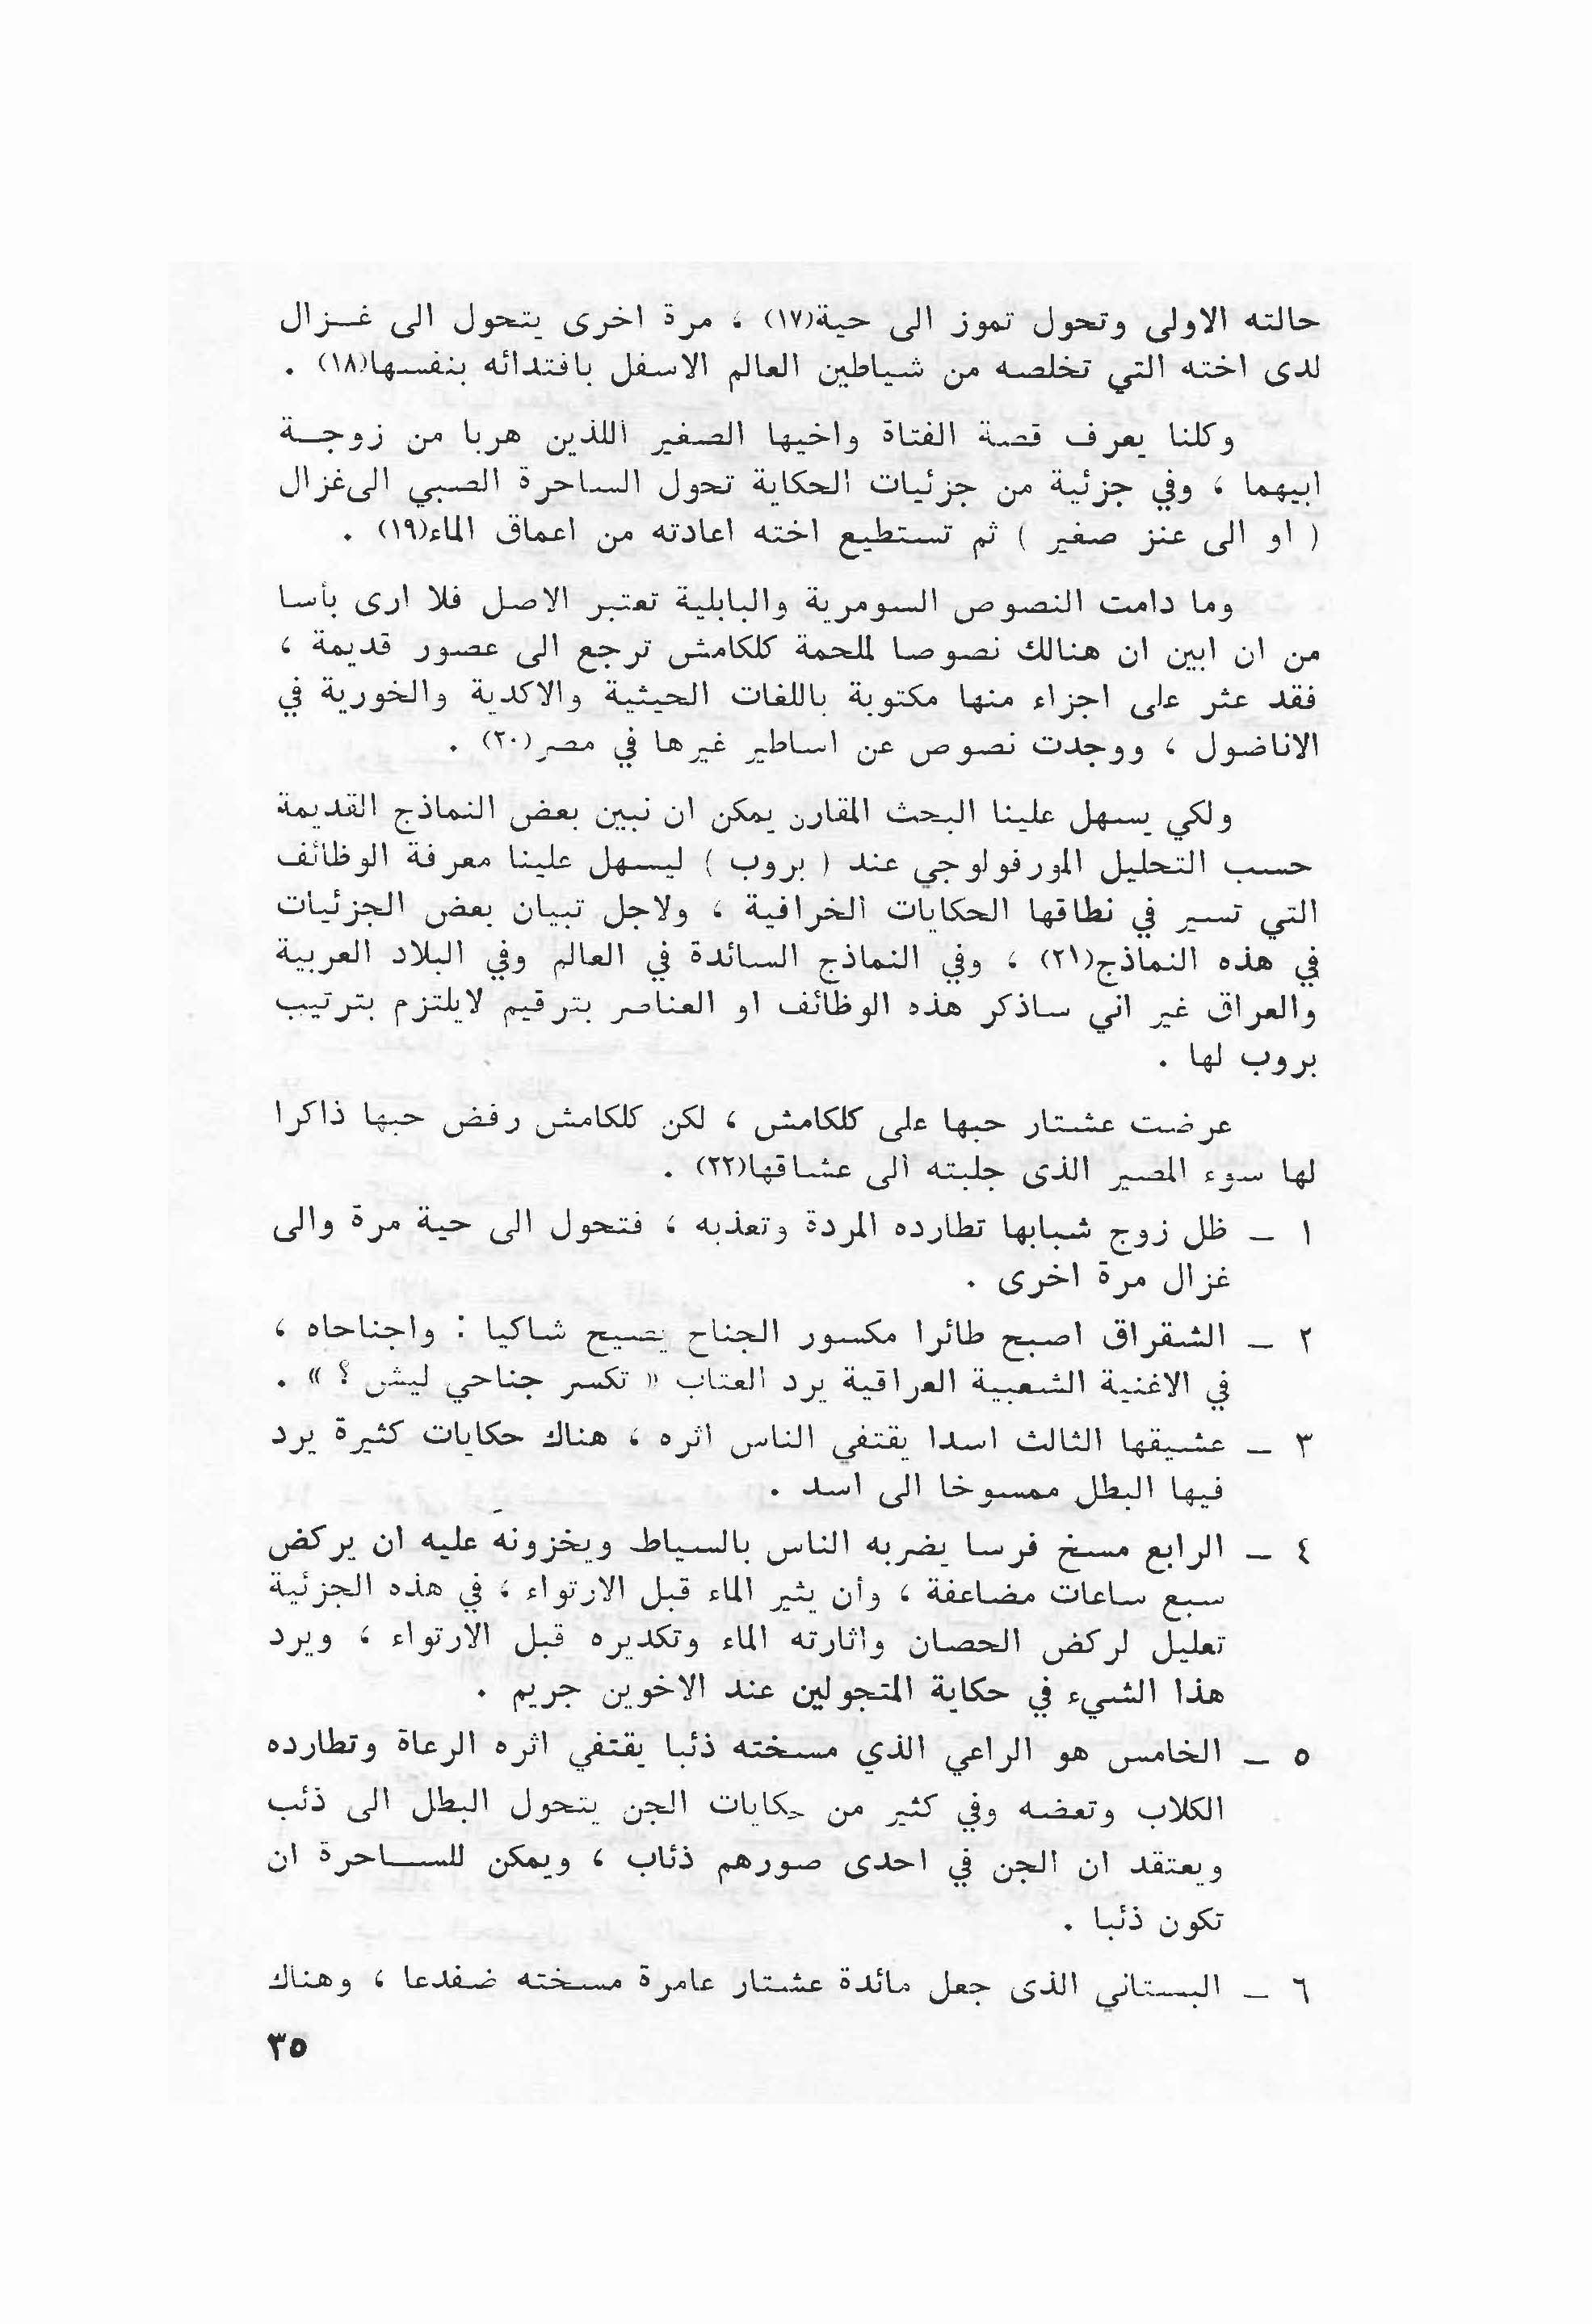 حالته الاولى وتحول تموز الى حية(١٧) ، مرة اخرى يتحول الى غــزال
لدى اخته التي تخلصه من شياطين العالم الاسفل بافتدائه بنفسها(١٨) .
وكلنا يعرف قصة الفتاة واخيها الصغير اللذين هربا من زوجــة
ابيهما ، وفي جزئية من جزئيات الحكاية تحول الساحرة الصبي الى غزال
( او الى عنز صغير ) ثم تستطيع اخته اعادته من اعماق الماء(١٩) .
وما دامت النصوص السومرية والبابلية تعتبر الاصل فلا ارى بأسا
من ان ابين ان هنالك نصوصا لملحمة كلكامش ترجع الى عصور قديمة ،
فقد عثر على اجزاء منها مكتوبة باللغات الحيثية والاكدية والخورية في
الاناضول ، ووجدت نصوص عن اساطير غيرها في مصر(٢٠) .
ولكي يسهل علينا البحث المقارن يمكن ان نبين بعض النماذج القديمة
حسب التحليل المورفولوجي عند ( بروب ) ليسهل علينا معرفة الوظائف
التي تسير في نطاقها الحكايات الخرافية ، ولاجل تبيان بعض الجزئيات
في هذه النماذج(٢١) ، وفي النماذج السائدة في العالم وفي البلاد العربية
والعراق غير اني ساذكر هذه الوظائف او العناصر بترقيم لايلتزم بترتيب
بروب لها .
عرضت عشتار حبها على كلكامش ، لكن كلكامش رفض حبها ذاكرا
لها سوء المصير الذى جلبته الى عشاقها(٢٢) .
١ – ظل زوج شبابها تطارده المردة وتعذبه ، فتحول الى حية مرة والى
غزال مرة اخرى .
٢ – الشقراق اصبح طائرا مكسور الجناح يصيح شاكيا : واجناحاه ،
في الاغنية الشعبية العراقية يرد العتاب « تكسر جناحي ليش ؟ » .
٣ – عشيقها الثالث اسدا يقتفي الناس اثره ، هناك حكايات كثيرة يرد
فيها البطل ممسوخا الى اسد .
٤ – الرابع مسخ فرسا يضربه الناس بالسياط ويخزونه عليه ان يركض
سبع ساعات مضاعفة ، وأن يثير الماء قبل الارتواء ، في هذه الجزئية
تعليل لركض الحصان واثارته الماء وتكديره قبل الارتواء ، ويرد
هذا الشيء في حكاية المتجولين عند الاخوين جريم .
٥ – الخامس هو الراعي الذي مسخته ذئبا يقتفي اثره الرعاة وتطارده
الكلاب وتعضه وفي كثير من حكايات الجن يتحول البطل الى ذئب
ويعتقد ان الجن في احدى صورهم ذئاب ، ويمكن للســاحرة ان
تكون ذئبا .
٦ – البستاني الذى جعل مائدة عشتار عامرة مسخته ضفدعا ، وهناك
٣٥